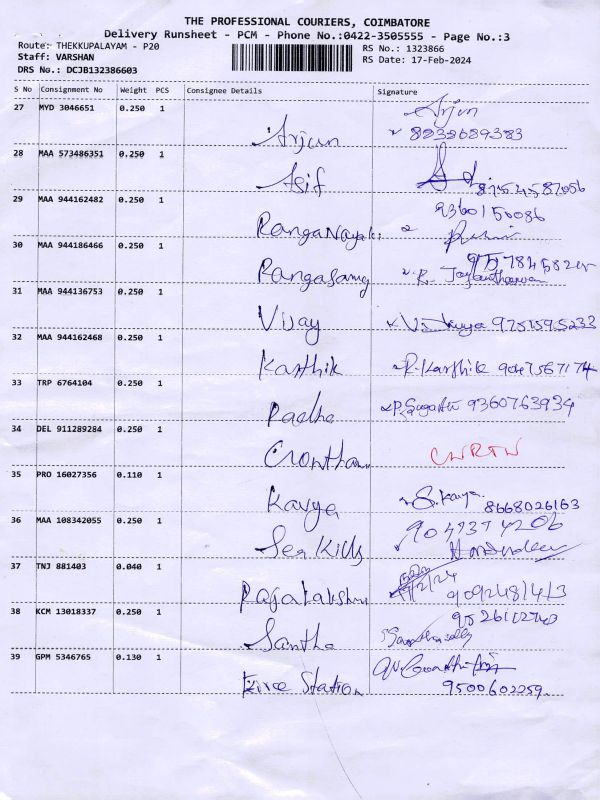 THE PROFESSIONAL COURIERS, COIMBATORE
Delivery Runsheet - PCM - Phone No.:0422-3505555 - Page No.:3
Route: THEKKUPALAYAM - P20
RS No.: 1323866
Staff: VARSHAN
RS Date: 17-Feb-2024
DRS No.: DCJB132386603
S No Consignment No Weight PCS Consignee Details Signature
27 MYD 3046651 0.250 1 Arjun Arjun
8838689383
28 MAA 573486351 0.250 1 Asif
8754587056
29 MAA 944162482 0.250 1 RangaNayaki 9360150086
30 MAA 944186466 0.250 1 Rangasamy
31 MAA 944136753 0.250 1 Vijay 9751595233
32 MAA 944162468 0.250 1 Karthik R. Karthik 9047567174
33 TRP 6764104 0.250 1 Radha 9360763934
34 DEL 911289284 0.250 1
35 PRO 16027356 0.110 1 Kavya S. Kavya 8668026163
36 MAA 108342055 0.250 1 Sea Kids
37 TNJ 881403 0.040 1 Rajalakshmi
38 KCM 13018337 0.250 1 Santha
39 GPM 5346765 0.130 1 Fire Station
9500602259